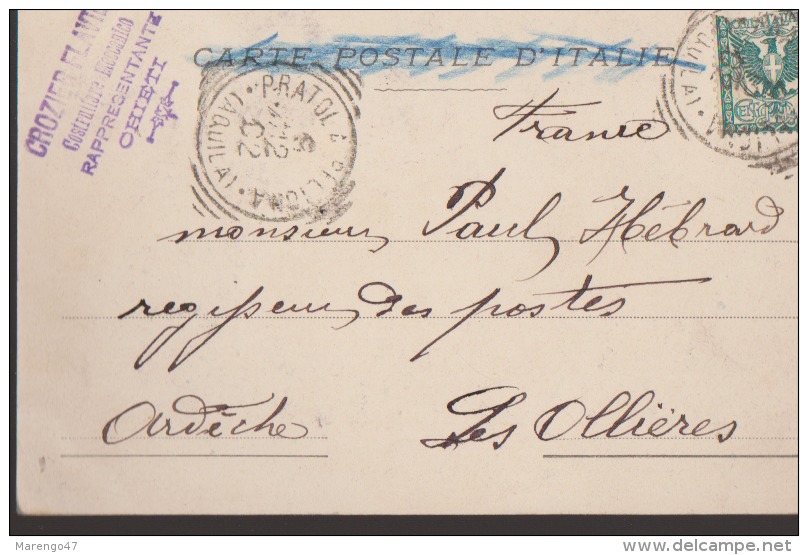 CROZIER FLAVI
Costruttore Meccanico
RAPPRESENTANTE
CHIETI
CARTE POSTALE D'ITALIE
PRATOLA PELIGNA
(AQUILA)
(AQUILA)
France
monsieur Paul Hébrard
regisseur des postes
Ardèche Les Ollières
Marengo47
delcampe.net